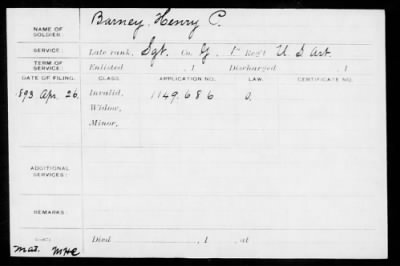 NAME OF SOLDIER: Barney, Henry C.
SERVICE: Late rank, Sgt. Co. G, 1" Reg't U.S. Art.
TERM OF SERVICE: Enlisted , 1 Discharged , 1
DATE OF FILING. CLASS. APPLICATION NO. LAW. CERTIFICATE NO.
1893 Apr. 26. Invalid, 1149.686
Widow,
Minor,
ADDITIONAL SERVICES:
REMARKS:
Died , 1 , at
Mat. MHC